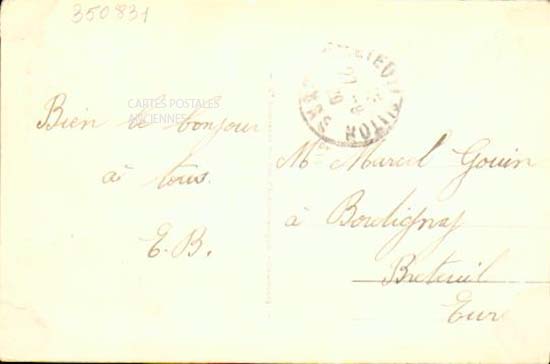 350831
CARTES POSTALES
ANCIENNES
Bien le bonjour
à tous.
E.B.
Mr Marcel Gouin
à Bouligny
Breteuil
Eure